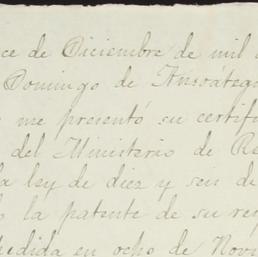 ce de Diciembre de mil
Domingo de Ansoátegu
me presentó su certif
del Ministerio de Re
la ley de diez y seis de
la patente de su re
edida en ocho de Novi